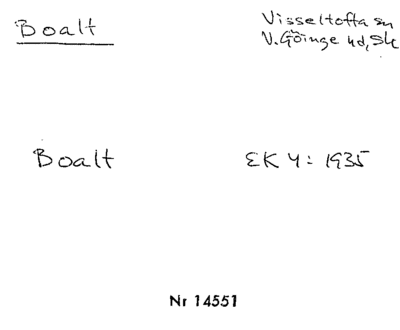 Boalt
Visseltofta sn
V. Göinge hd, Sk
Boalt
EK 4: 1935
Nr 14551